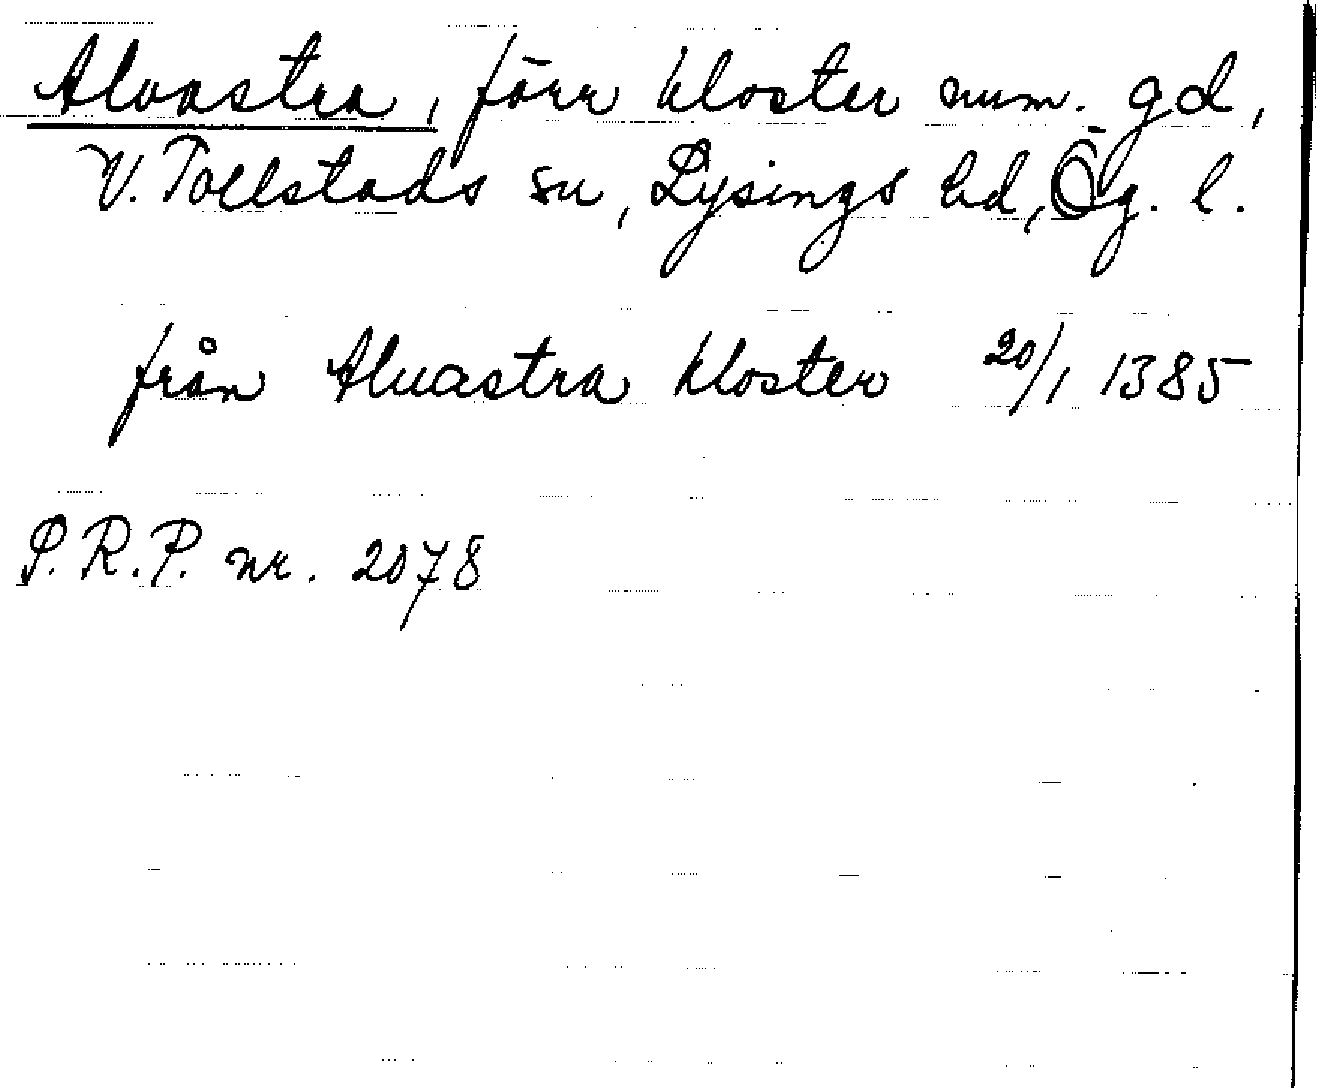 Alvastra, förr kloster num. gd,
V. Tollstads sn, Lysings hd, Ög. l.
från Aluastra kloster 20/1 1385
S.R.P. nr. 2078